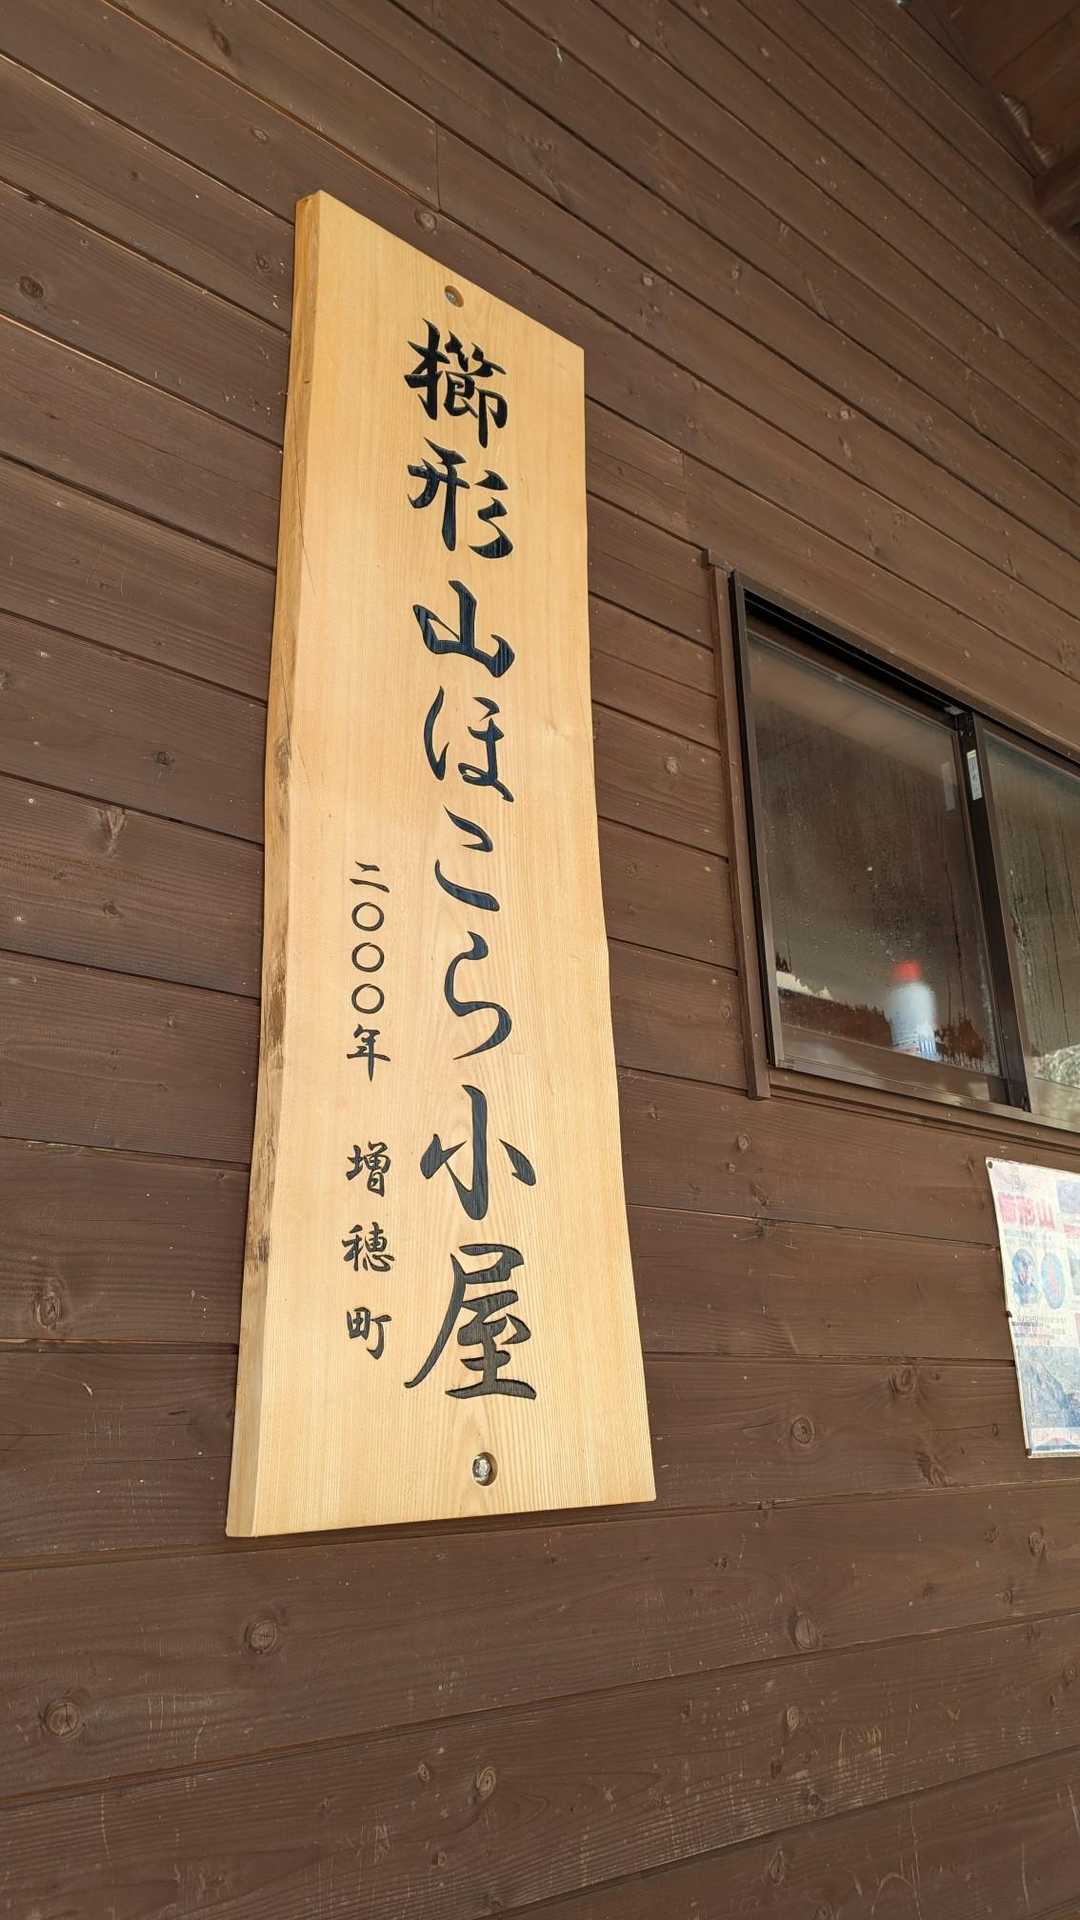 櫛形山ほこら小屋
二〇〇〇年 増穂町
櫛形山